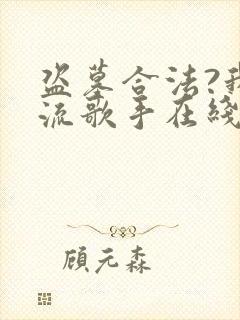 盗墓合法?我
流歌手在线
顾元森